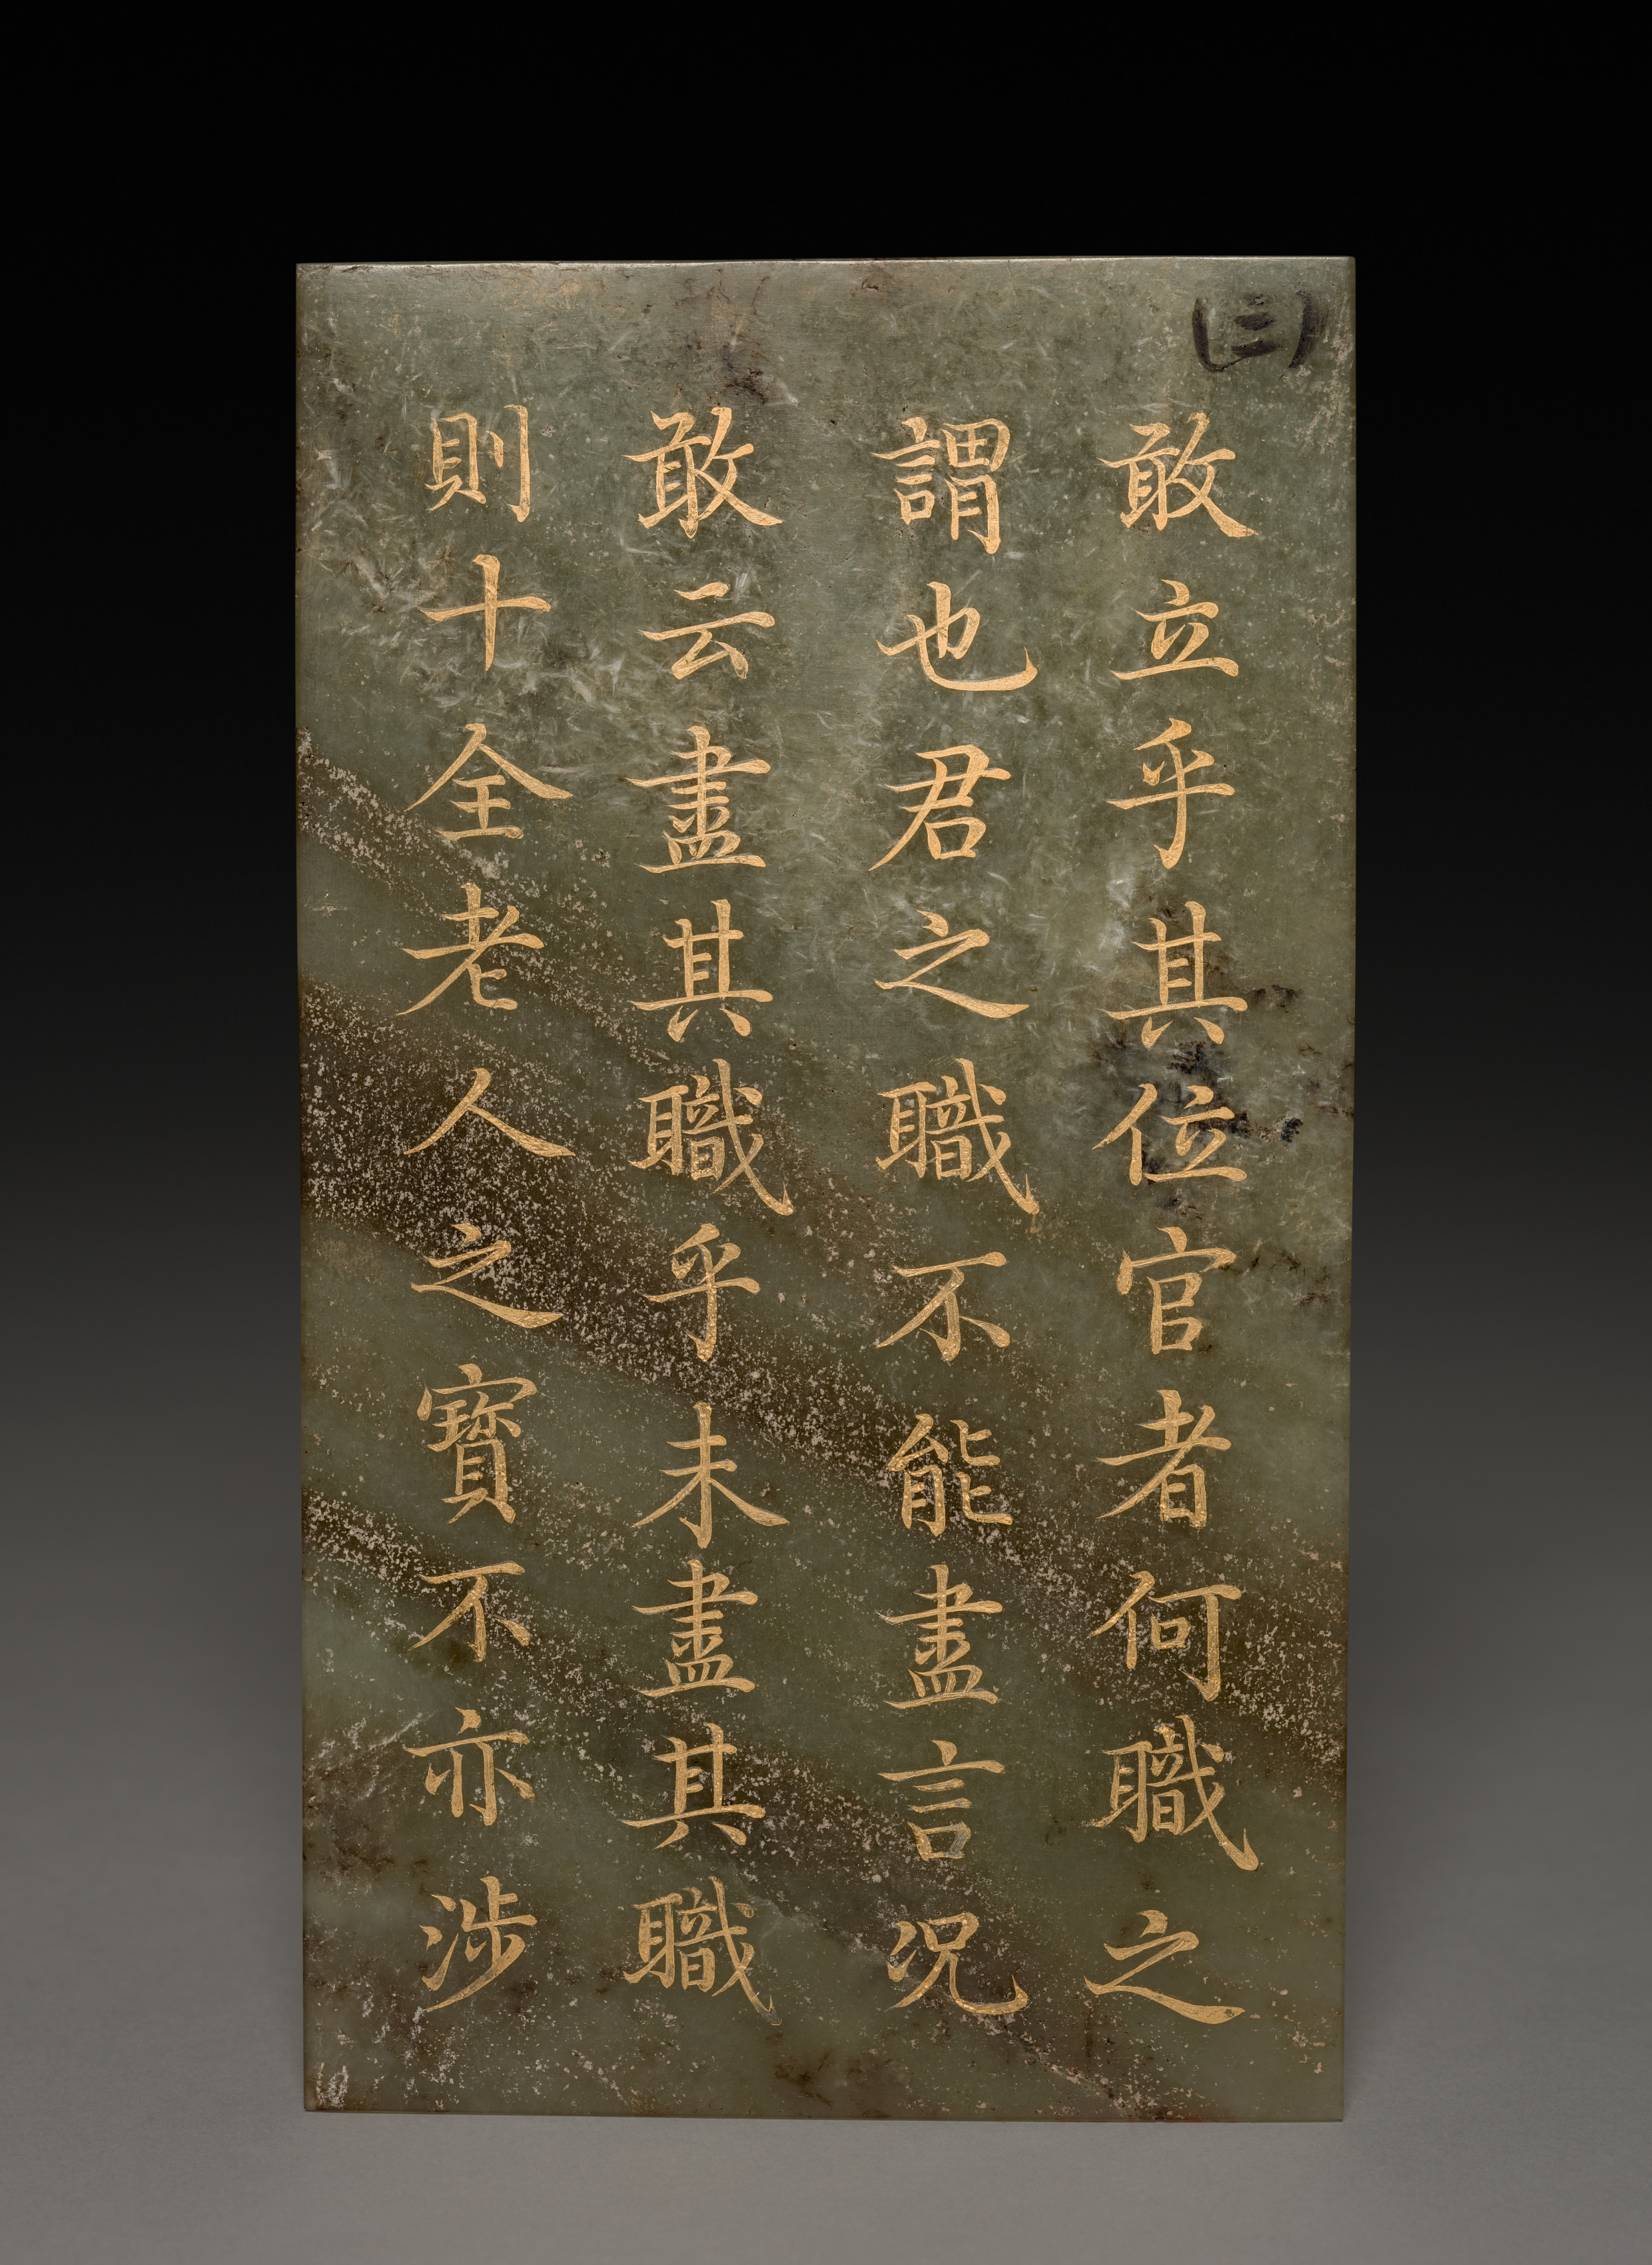 (三)
敢立乎其位官者何職之
謂也君之職不能盡言况
敢云盡其職乎未盡其職
則十全老人之寳不亦涉